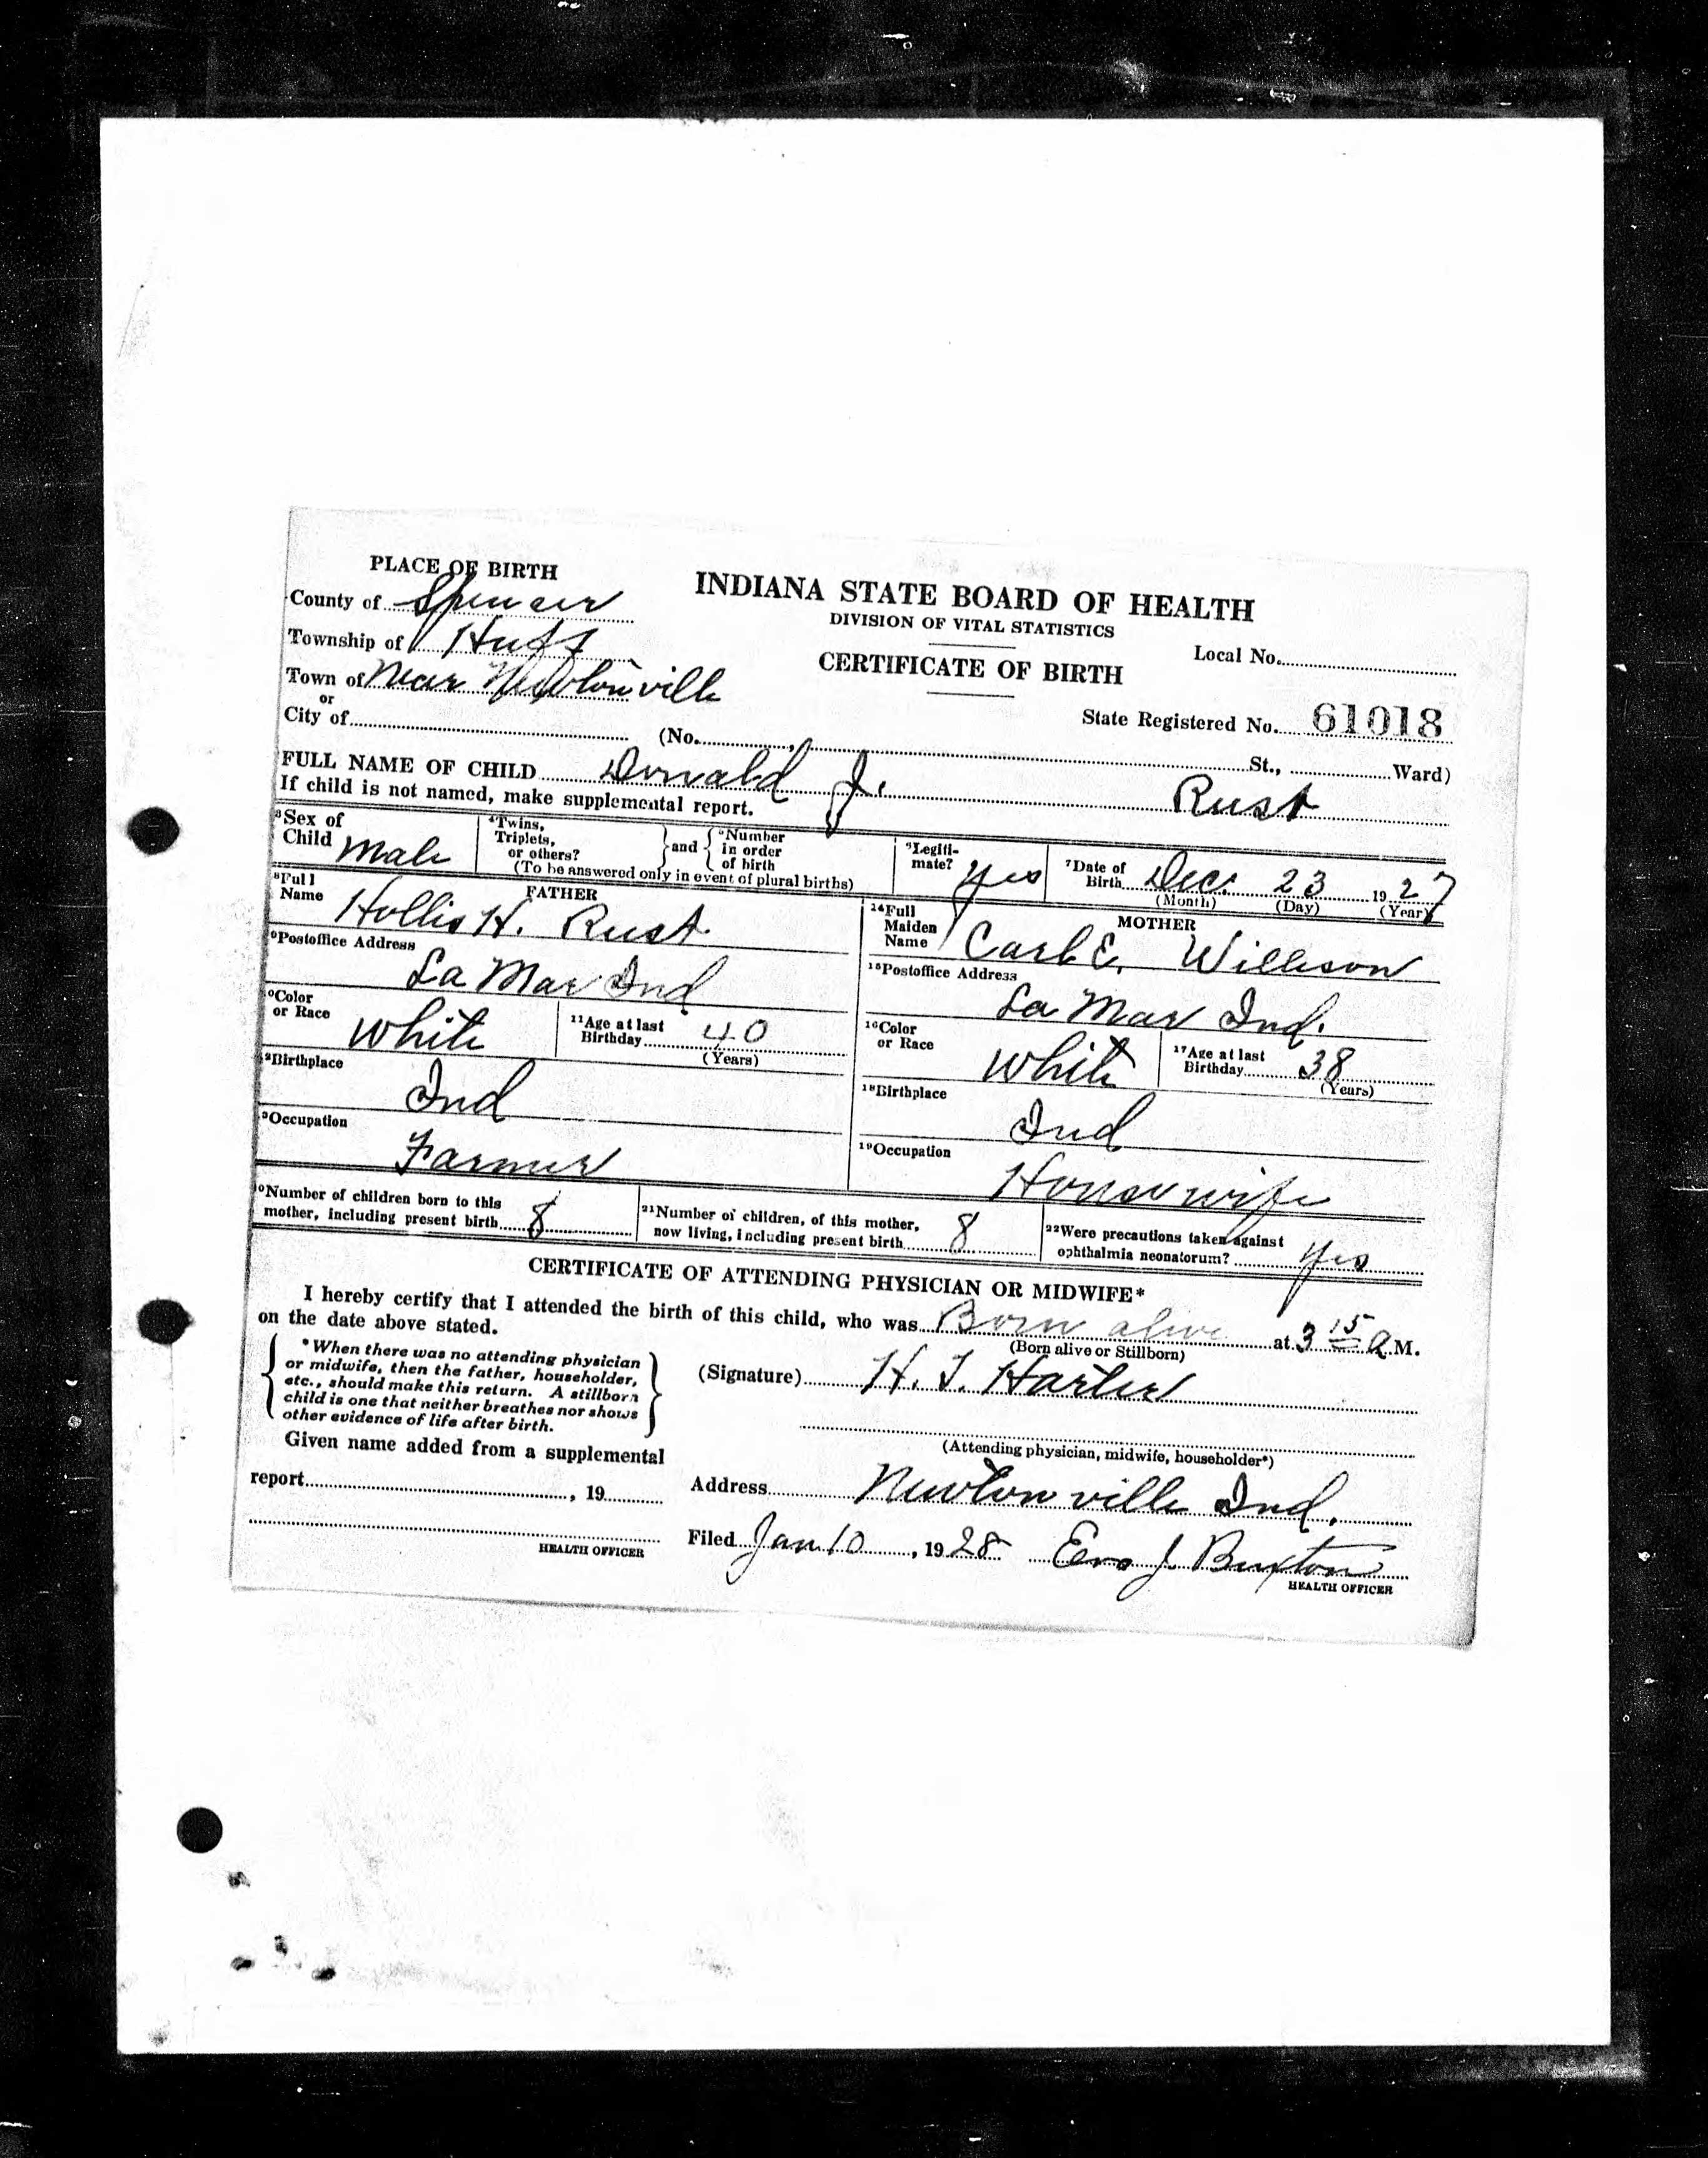 PLACE OF BIRTH
County of Spencer
Township of Huff
Town of Near Newtonville
or
City of
INDIANA STATE BOARD OF HEALTH
DIVISION OF VITAL STATISTICS
CERTIFICATE OF BIRTH
Local No.
State Registered No. 61018
(No. , St., Ward)
FULL NAME OF CHILD Donald J. Rust
If child is not named, make supplemental report.
3Sex of Child Male
4Twins, Triplets, or others? } and { 5Number in order of birth
(To be answered only in event of plural births)
6Legiti-mate? Yes
7Date of Birth Dec. 23 1927
(Month) (Day) (Year)
FATHER
8Full Name Hollis H. Rust
9Postoffice Address
La Mar Ind
10Color or Race White
11Age at last Birthday 40
(Years)
12Birthplace
Ind
13Occupation
Farmer
MOTHER
14Full Maiden Name E. Willison
15Postoffice Address
La Mar Ind.
16Color or Race White
17Age at last Birthday 38
(Years)
18Birthplace
Ind
19Occupation
Housewife
20Number of children born to this
mother, including present birth 8
21Number of children, of this mother,
now living, including present birth 8
22Were precautions taken against
ophthalmia neonatorum? Yes
CERTIFICATE OF ATTENDING PHYSICIAN OR MIDWIFE*
I hereby certify that I attended the birth of this child, who was Born alive at 3 15 a M.
on the date above stated.
(Born alive or Stillborn)
*When there was no attending physician
or midwife, then the father, householder,
etc., should make this return. A stillborn
child is one that neither breathes nor shows
other evidence of life after birth.
(Signature) H. J. Harter
(Attending physician, midwife, householder*)
Given name added from a supplemental
report , 19
HEALTH OFFICER
Address Newtonville Ind.
Filed Jan 10 , 1928 J Buxton
HEALTH OFFICER